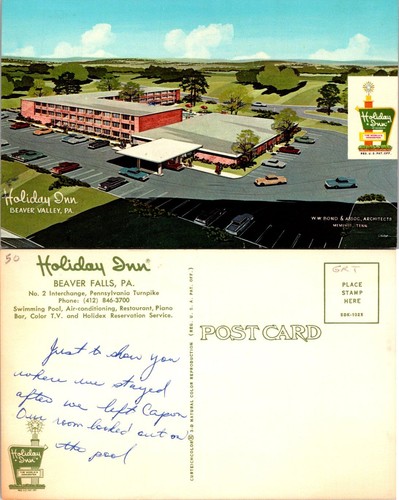 Holiday Inn
BEAVER VALLEY, PA.
Holiday Inn
REG. U.S. PAT. OFF.
W.W. BOND & ASSOC., ARCHITECTS
MEMPHIS, TENN.
50
Holiday Inn®
BEAVER FALLS, PA.
No. 2 Interchange, Pennsylvania Turnpike
Phone: (412) 846-3700
Swimming Pool, Air-conditioning, Restaurant, Piano
Bar, Color T.V. and Holidex Reservation Service.
Just to show you
where we stayed
after we left Capon
Our room looked out on
the pool
Holiday Inn
CURTEICHCOLOR® 3-D NATURAL COLOR REPRODUCTION (REG. U.S.A. PAT. OFF.)
POST CARD
PLACE
STAMP
HERE